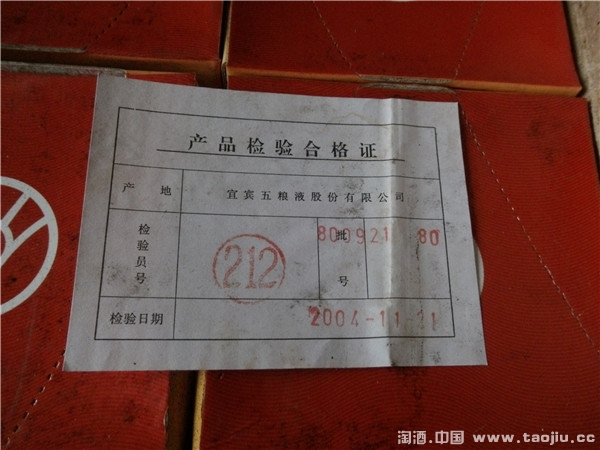 产品检验合格证
产 地 宜宾五粮液股份有限公司
检验员号 212 批号 800921 80
检验日期 2004-11-11
淘酒.中国 www.taojiu.cc